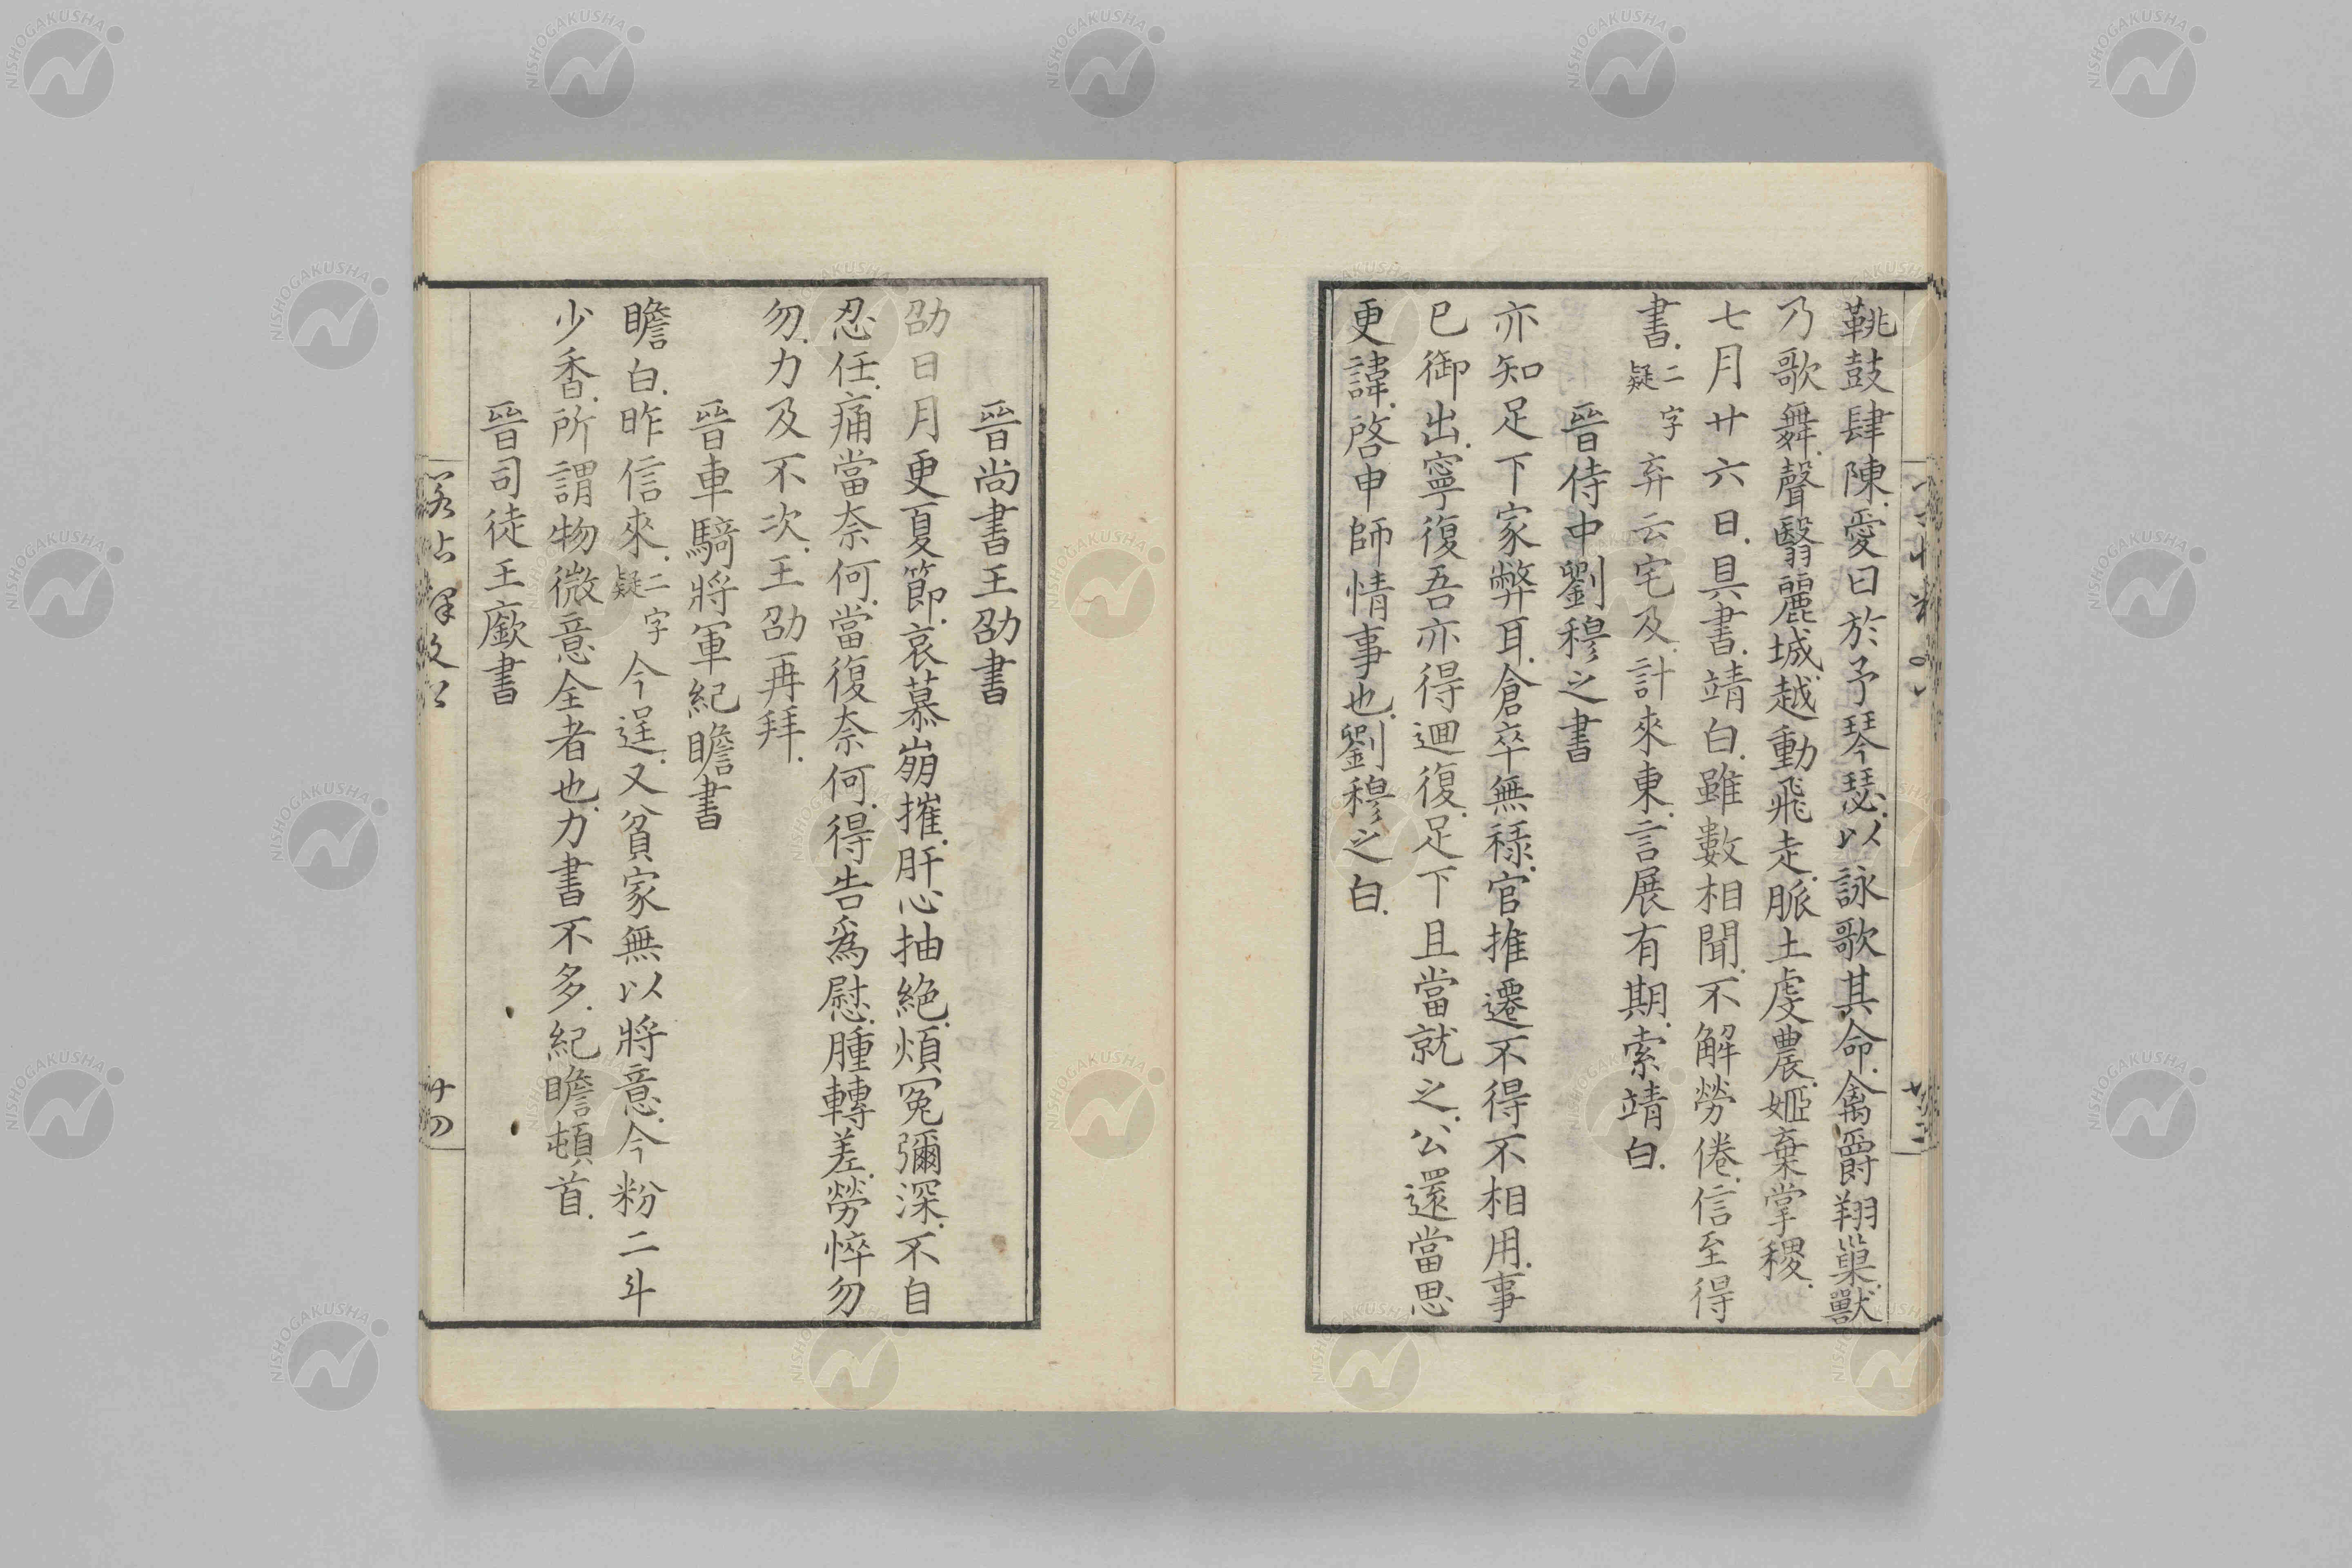 鞉鼓肆陳愛曰於予琴瑟以詠歌其命禽爵翔巢獸
乃歌舞聲翳麗城越動飛走脈土虔農姬棄掌稷
七月廿六日具書靖白雖數相聞不解勞倦信至得
書二字疑弃云宅及計來東言展有期索靖白
晉侍中劉穆之書
亦知足下家弊耳倉卒無祿官推遷不得不相用事
已御出寧復吾亦得迴復足下且當就之公還當思
更諱啓申師情事也劉穆之白
晉尚書王劭書
劭日月更夏節哀慕崩摧肝心抽絶煩冤彌深不自
忍任痛當奈何當復奈何得告爲慰腫轉差勞悴勿
勿力及不次王劭再拜
晉車騎將軍紀瞻書
瞻白昨信來二字疑今逞又貧家無以將意今粉二斗
少香所謂物微意全者也力書不多紀瞻頓首
晉司徒王廞書
NISHOGAKUSHA